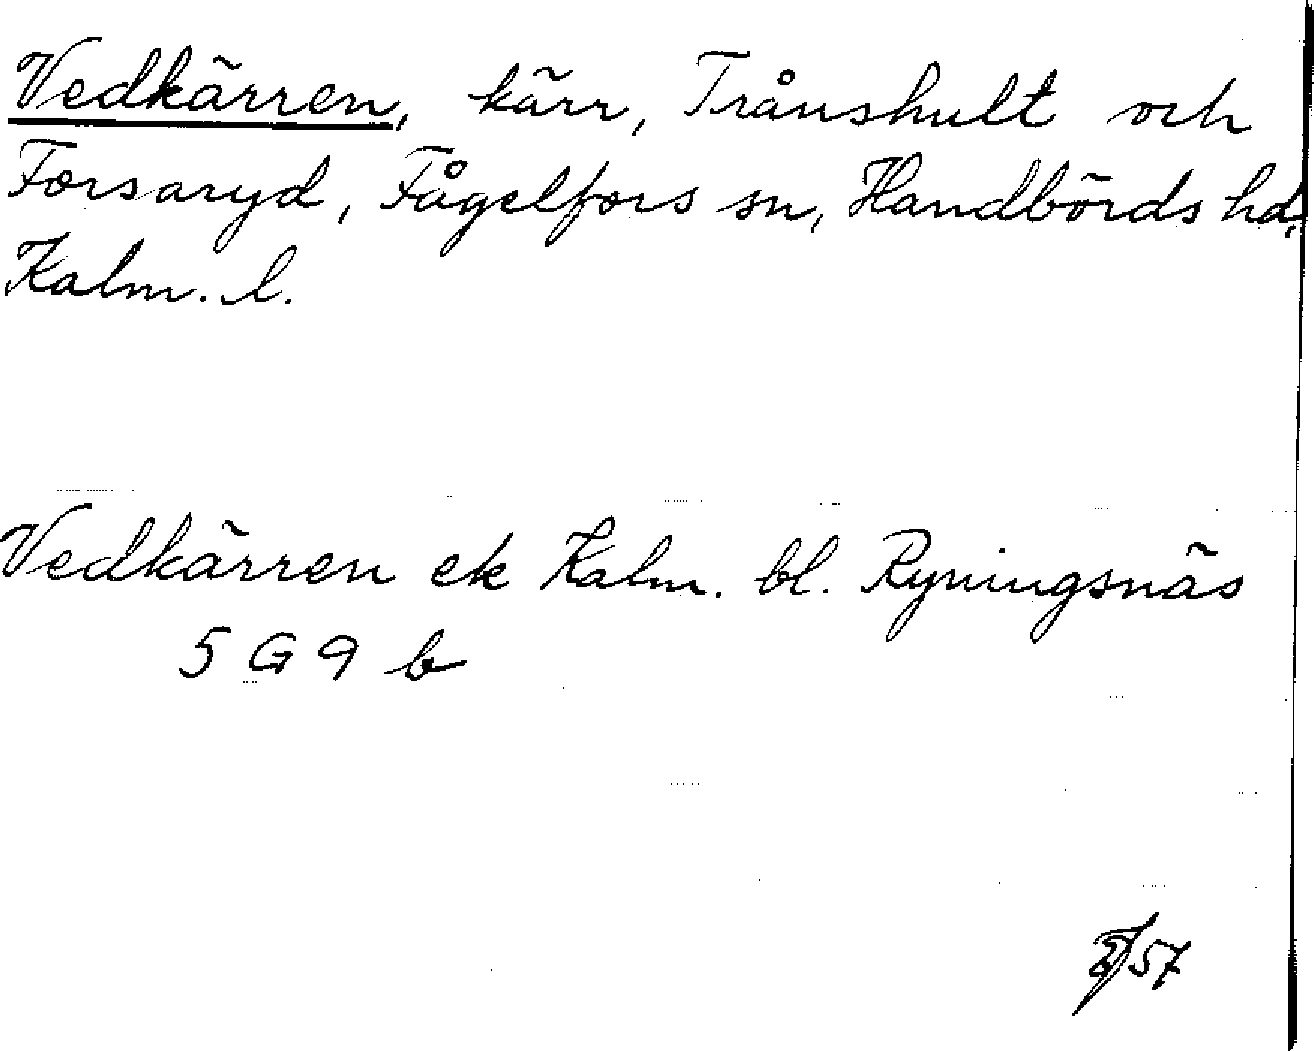 Vedkärren, kärr, Trånshult och
Forsaryd, Fågelfors sn, Handbörds hd,
Kalm. l.
Vedkärren ek Kalm. bl. Ryningsnäs
5 G 9 b
57